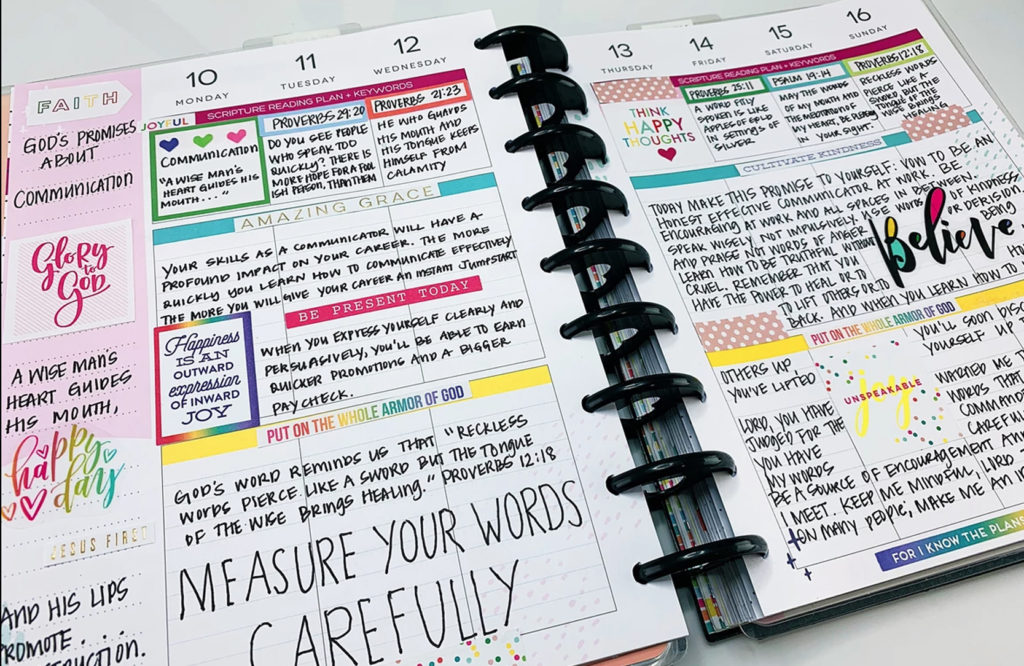 FAITH
GOD'S PROMISES
ABOUT
COMMUNICATION
Glory
to
God
A WISE MAN'S
HEART GUIDES
HIS MOUTH,
happy
day
JESUS FIRST
AND HIS LIPS
PROMOTE....
10
MONDAY
11
TUESDAY
12
WEDNESDAY
SCRIPTURE READING PLAN + KEYWORDS
JOYFUL
COMMUNICATION
"A WISE MAN'S
HEART GUIDES HIS
MOUTH..."
PROVERBS 29:20
DO YOU SEE PEOPLE
WHO SPEAK TOO
QUICKLY? THERE IS
MORE HOPE FOR A FOOL
ISH PERSON, THAN THEM
PROVERBS 21:23
HE WHO GUARDS
HIS MOUTH AND
HIS TONGUE KEEPS
HIMSELF FROM
CALAMITY
AMAZING GRACE
YOUR SKILLS AS A COMMUNICATOR WILL HAVE A
PROFOUND IMPACT ON YOUR CAREER. THE MORE
QUICKLY YOU LEARN HOW TO COMMUNICATE EFFECTIVELY
THE MORE YOU WILL GIVE YOUR CAREER AN INSTANT JUMPSTART
BE PRESENT TODAY
Happiness
IS AN
OUTWARD
expression
OF INWARD
JOY
WHEN YOU EXPRESS YOURSELF CLEARLY AND
PERSUASIVELY, YOU'LL BE ABLE TO EARN
QUICKER PROMOTIONS AND A BIGGER
PAYCHECK.
PUT ON THE WHOLE ARMOR OF GOD
GOD'S WORD REMINDS US THAT "RECKLESS
WORDS PIERCE LIKE A SWORD BUT THE TONGUE
OF THE WISE BRINGS HEALING." PROVERBS 12:18
MEASURE YOUR WORDS
CAREFULLY
13
THURSDAY
14
FRIDAY
15
SATURDAY
16
SUNDAY
SCRIPTURE READING PLAN + KEYWORDS
THINK
HAPPY
THOUGHTS
PROVERBS 25:11
A WORD FITLY
SPOKEN IS LIKE
APPLES OF GOLD
IN SETTINGS OF
SILVER
PSALM 19:14
MAY THE WORDS
OF MY MOUTH AND
THE MEDITATION OF
MY HEART, BE
IN YOUR SIGHT.
PROVERBS 12:18
RECKLESS WORDS
PIERCE LIKE A
SWORD BUT THE
TONGUE OF THE
WISE BRINGS
HEALING
CULTIVATE KINDNESS
TODAY MAKE THIS PROMISE TO YOURSELF: VOW TO BE AN
HONEST EFFECTIVE COMMUNICATOR AT WORK. BE
ENCOURAGING AT WORK AND ALL SPACES IN BETWEEN.
SPEAK WISELY, NOT IMPULSIVELY. USE WORDS OF KINDNESS
AND PRAISE NOT WORDS OF ANGER OR DERISION
LEARN HOW TO BE TRUTHFUL WITHOUT BEING
CRUEL. REMEMBER THAT YOU
HAVE THE POWER TO HEAL OR TO
TO LIFT OTHERS OR TO
BACK. AND WHEN YOU LEARN HOW TO
believe
PUT ON THE WHOLE ARMOR OF GOD
OTHERS UP
YOU'VE LIFTED
YOU'LL SOON
YOURSELF UP
UNSPEAKABLE
joy
LORD, YOU HAVE WARNED ME
JUDGED FOR THE WORDS THAT
YOU HAVE COMMAND
MY WORDS CAREFUL
BE A SOURCE OF ENCOURAGEMENT AND
I MEET. KEEP ME MINDFUL, LORD
ON MANY PEOPLE, MAKE ME AN
FOR I KNOW THE PLANS